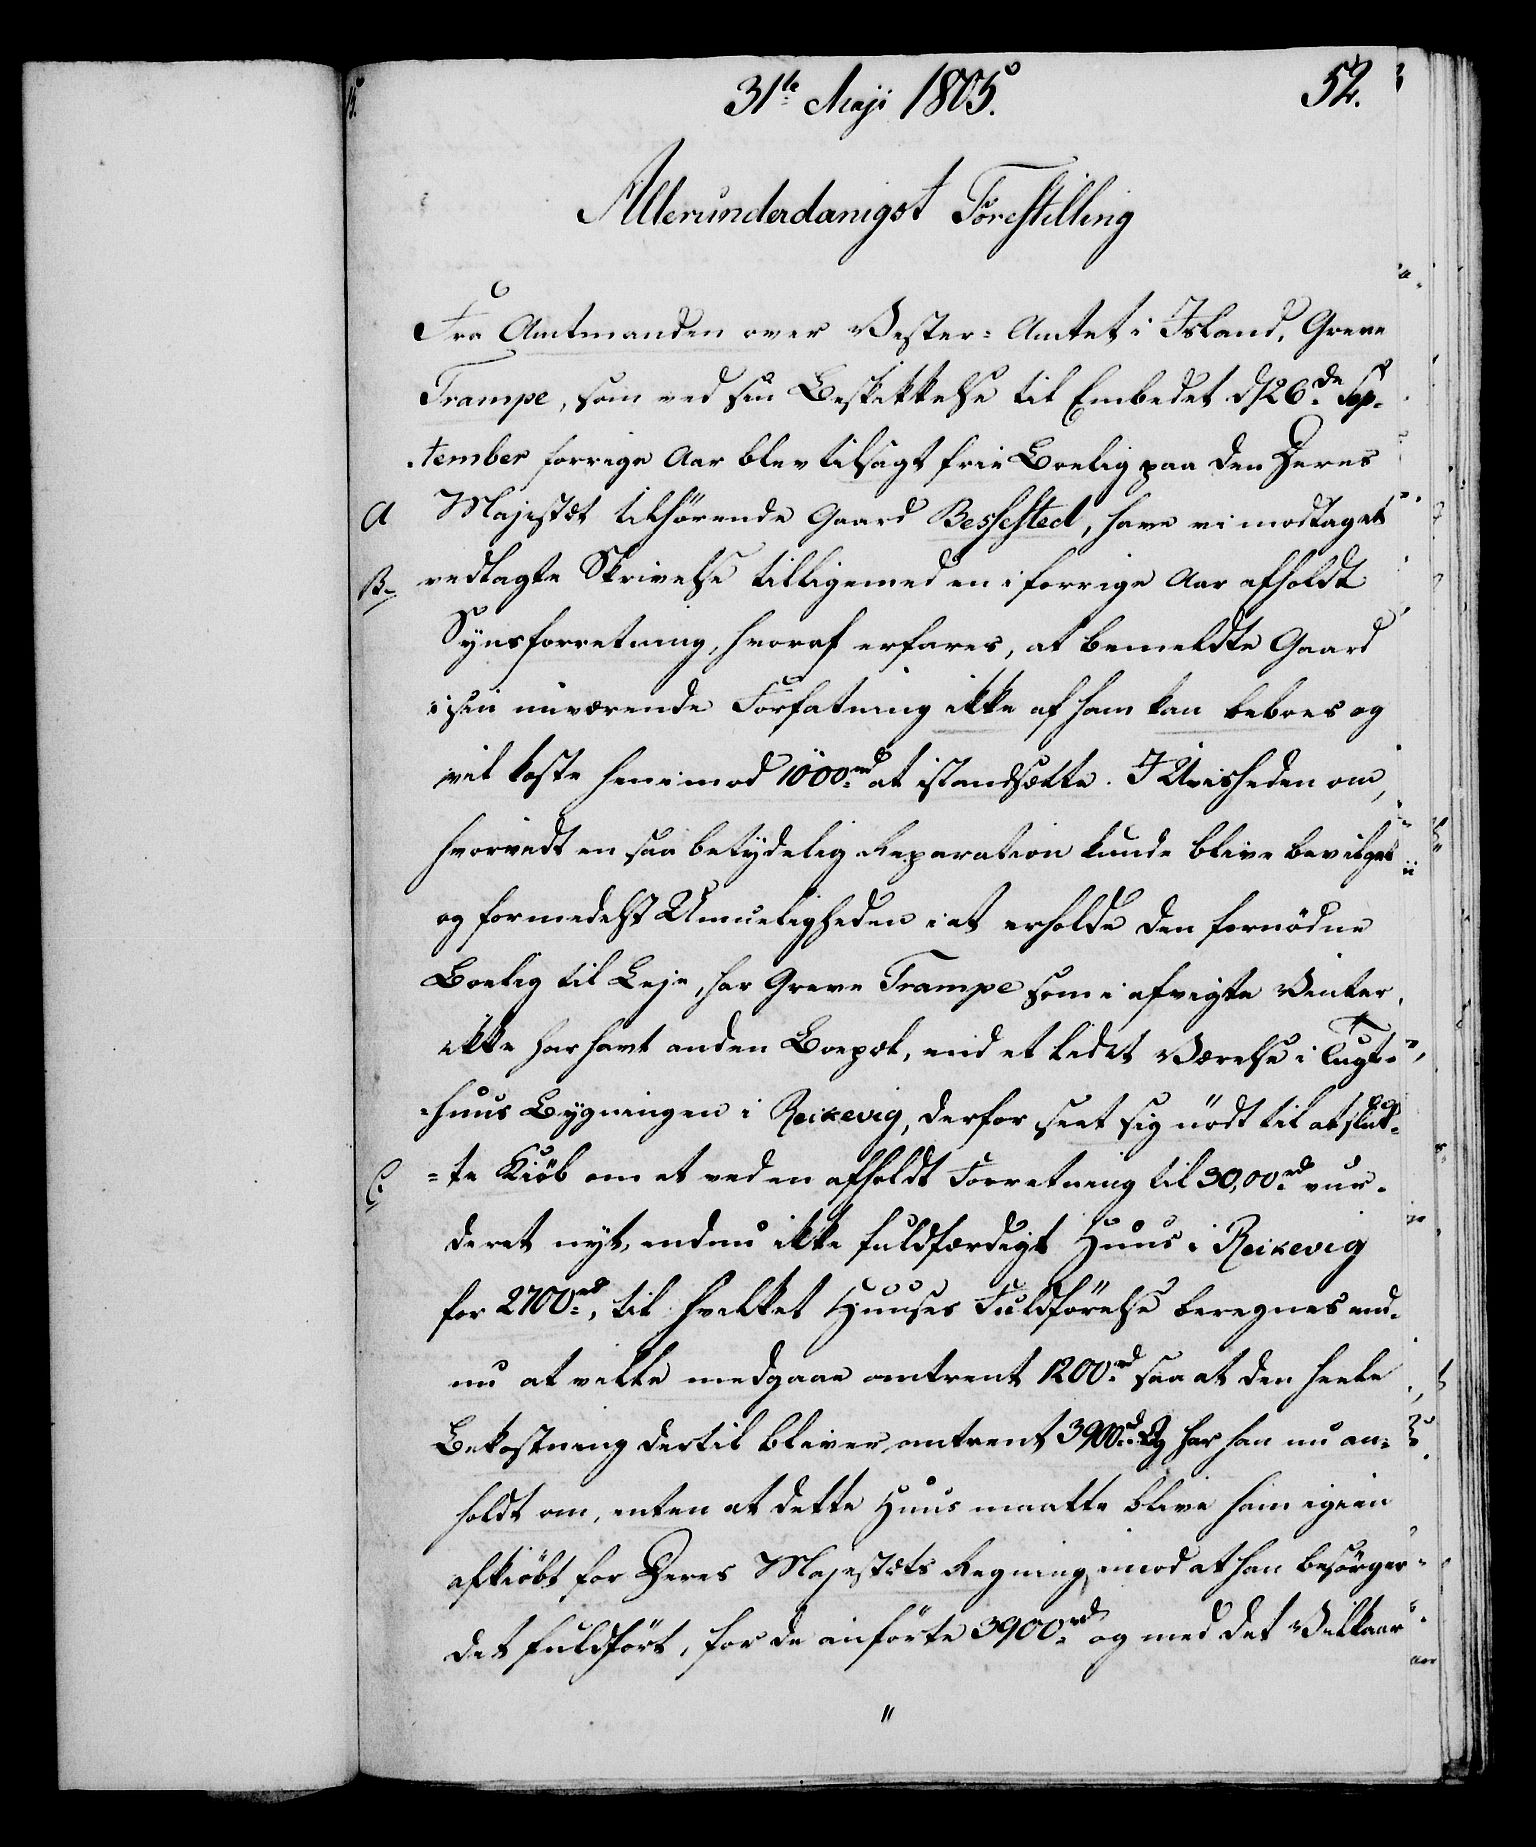 31te Maji 1805.
52.
Allerunderdanigst Forestilling
Fra Amtmanden over Vester-Amtet i Island, Greve
Trampe, som ved sin Beskikkelse til Embedet d/26de Sep-
-tember forrige Aar blev tilsagt frie Boelig paa den Deres
A Majestæt tilhørende Gaard Bessested, have vi modtaget
B. vedlagte Skrivelse tilligemed en i forrige Aar afholdt
Synsforretning, hvoraf erfares, at bemeldte Gaard
i sin nuværende Forfatning ikke af ham kan beboes og
vil koste henimod 1000rd at istandsætte. I Uvisheden om,
hvorvidt en saa betydelig Reparation kunde blive bevilget
og formedelst Umueligheden i at erholde den fornødne
Boelig til Leje, har Greve Trampe som i afvigte Vinter,
ikke har havt anden Boepæl, end et lidet Værelse i Tugt-
-huus Bygningen i Reikevig, derfor seet sig nødt til at slut-
C. -te Kiøb om et ved en afholdt Forretning til 30,00rd vur-
deret nyt, endnu ikke fuldfærdigt Huus i Reikevig
for 2700rd, til hvilket Huuses Fuldførelse beregnes end-
nu at ville medgaae omtrent 1200rd saa at den heele
Bekostning dertil bliver omtrent 3900rd. Og har han nu an-
holdt om, enten at dette Huus maatte blive ham igien
afkiøbt for Deres Majestæts Regning, imod at han besørger
det fuldført, for de anførte 3900rd og med det Vilkaar
"